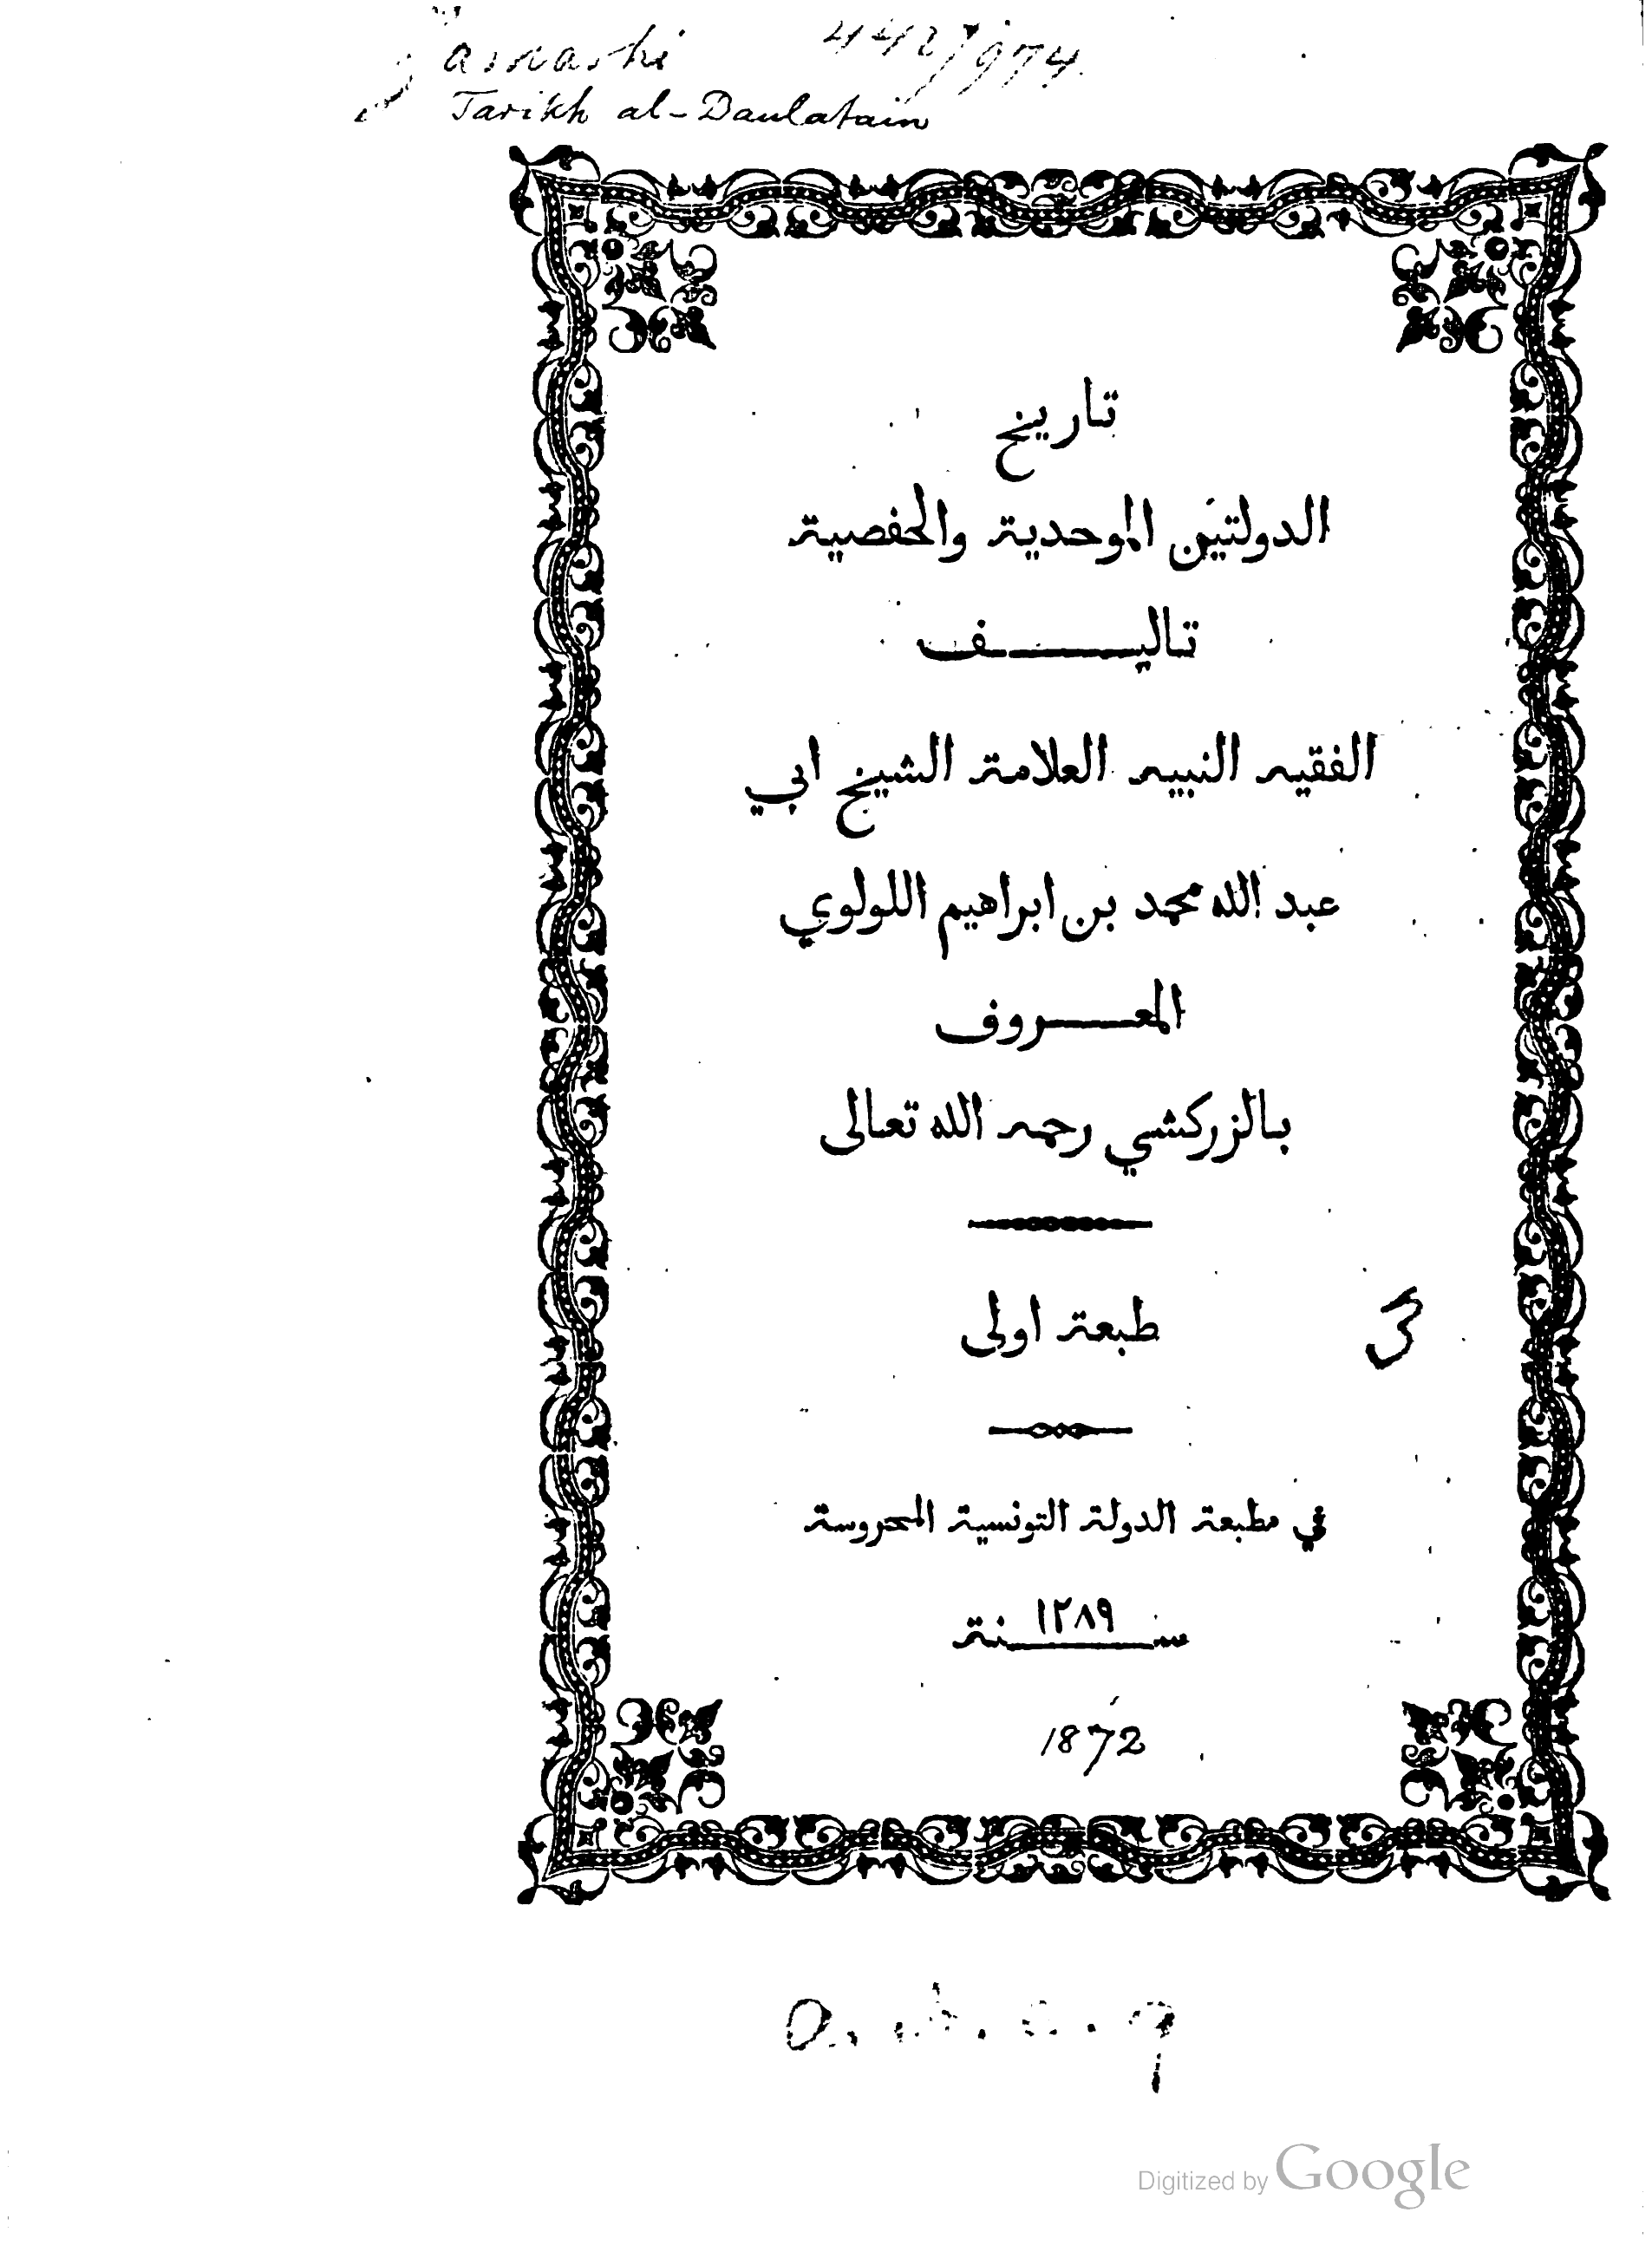 442/974.
Tarikh al-Daulatain
تاريخ
الدولتين الموحدية والحفصية
تاليف
الفقيه النبيه العلامة الشيخ ابي
عبد الله محمد بن ابراهيم اللولوي
المعروف
بالزركشي رحمه الله تعالى
طبعة اولى
في مطبعة الدولة التونسية المحروسة
سنة ١٢٨٩
1872
Digitized by Google